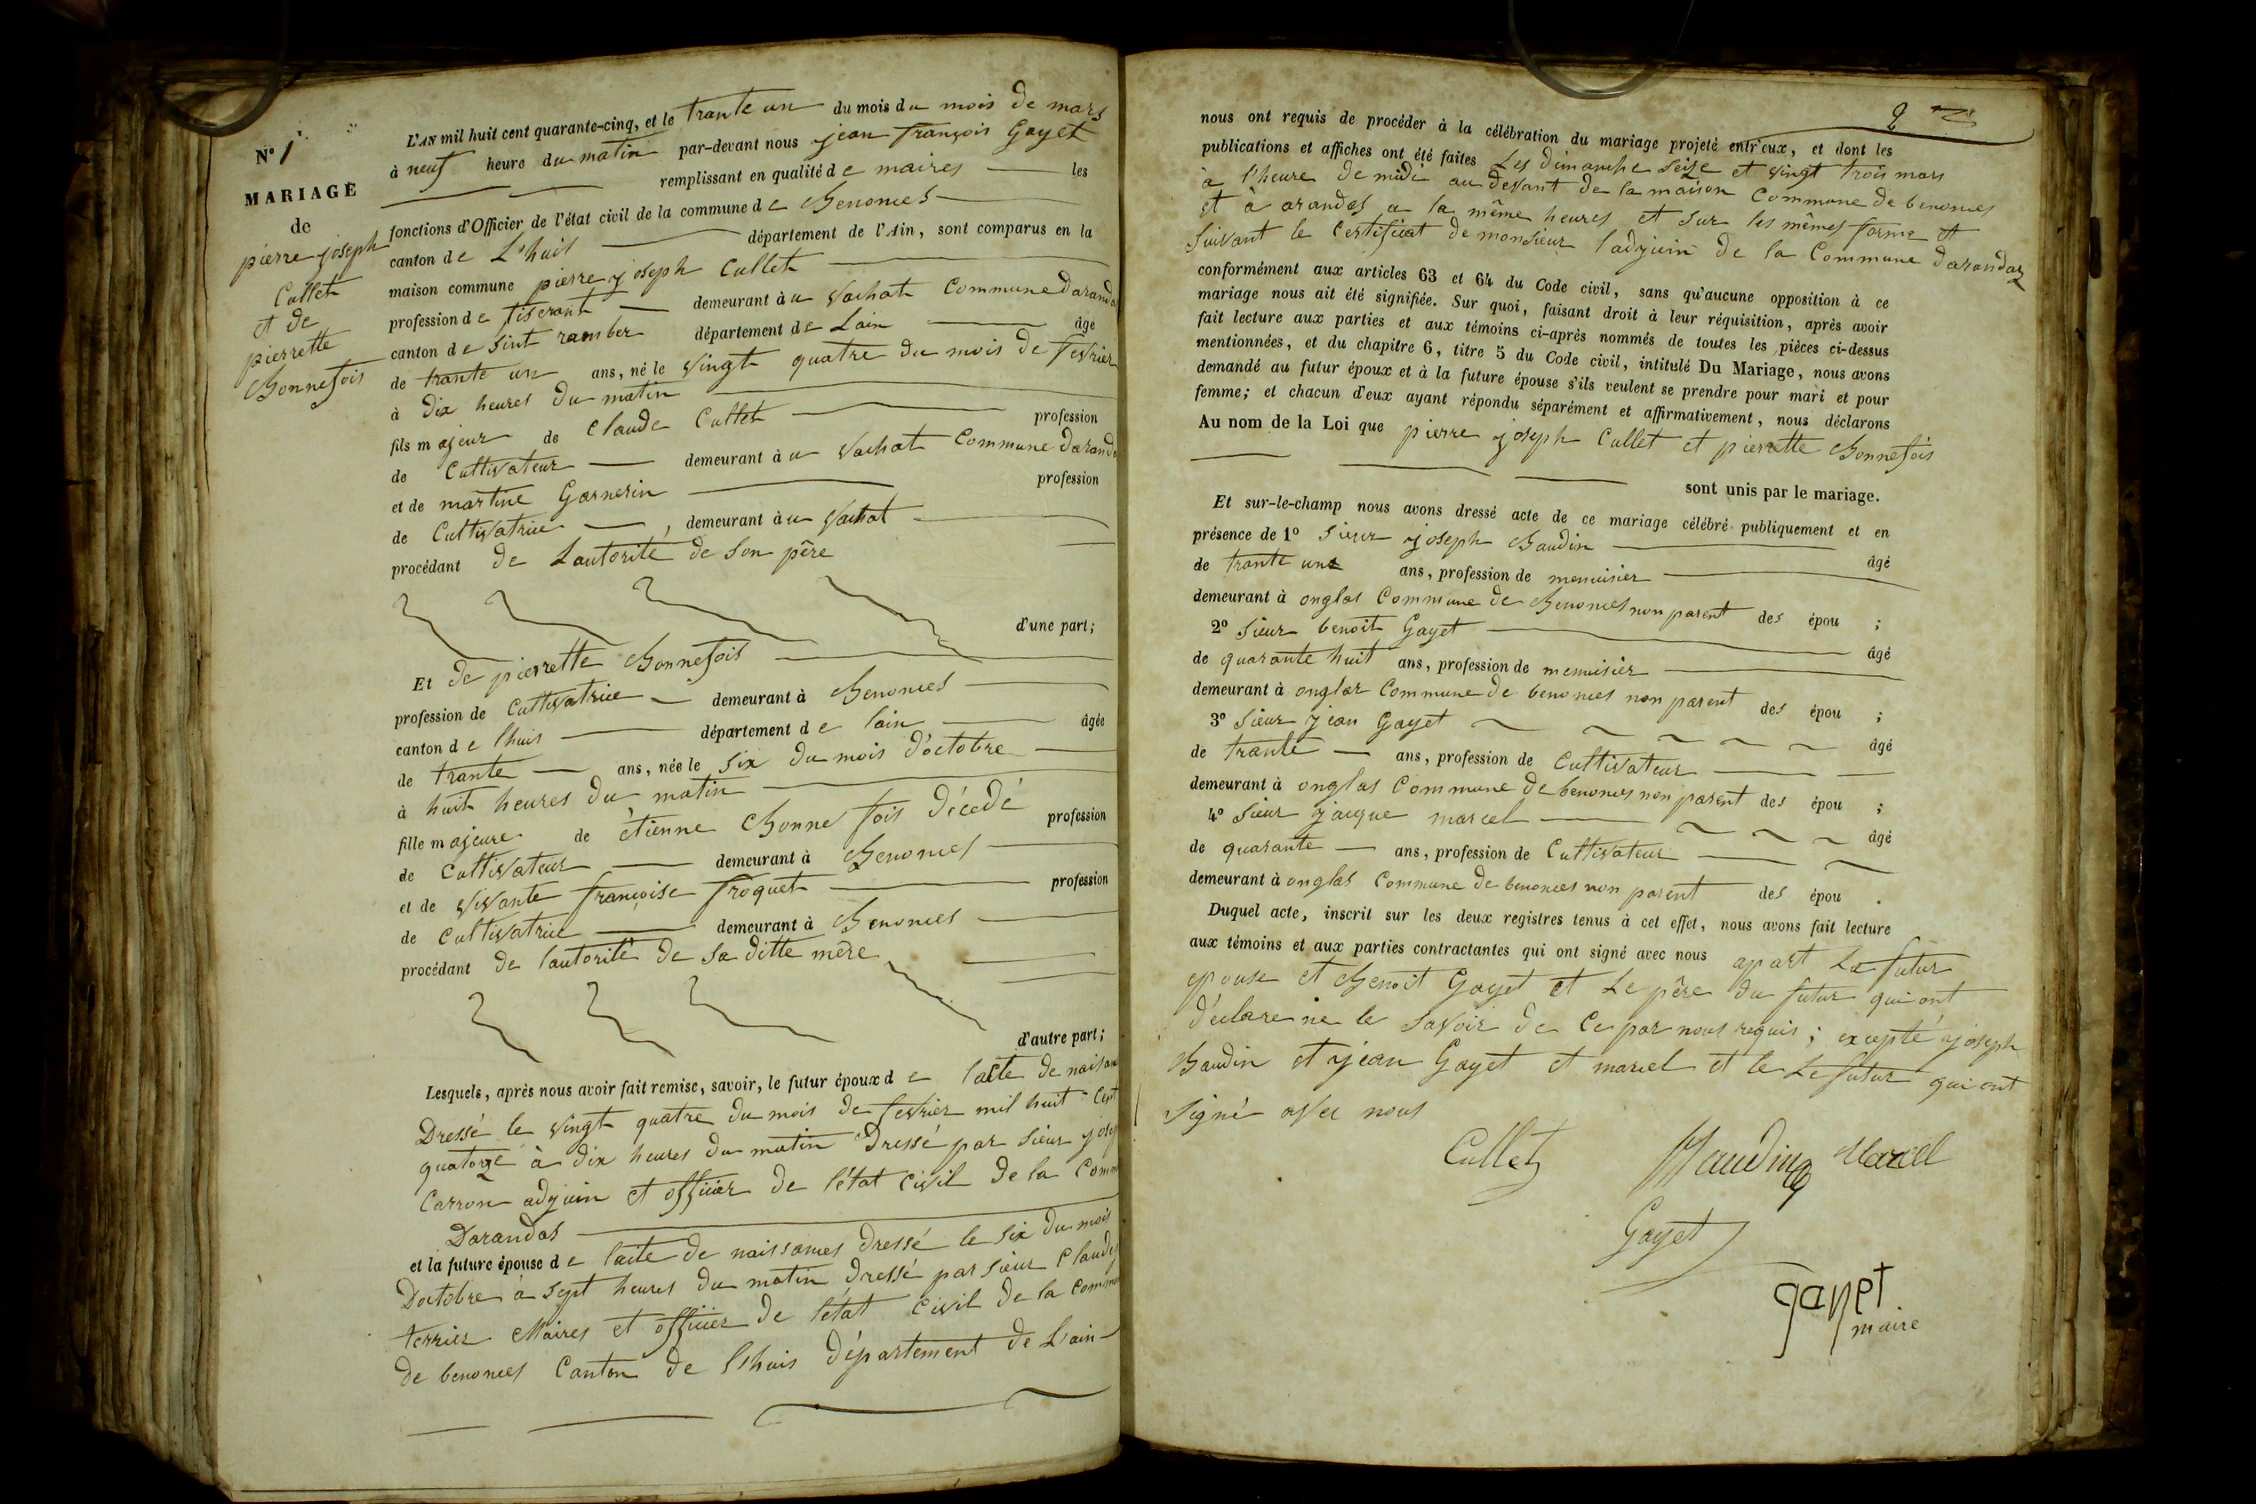 N° 1
MARIAGE
de
pierre joseph
Cullet
et de
pierrette
Bonnefois
L'AN mil huit cent quarante-cinq, et le trante un du mois du mois de mars
à neuf heure du matin par-devant nous jean françois Gayet
remplissant en qualité de maires les
fonctions d'Officier de l'état civil de la commune de Benonces
canton de L'huis département de l'Ain, sont comparus en la
maison commune pierre joseph Cullet
profession de tiserant demeurant à u Vachat Commune Darandas
canton de sint ramber département de Lain âgé
de trante un ans, né le vingt quatre du mois de fevrier
à dix heures du matin
fils majeur de Claude Cullet profession
de Cultivateur demeurant à u Vachat Commune Darandas
et de martine Garnerin profession
de Cultivatrice, demeurant à u Vachat
procédant de Lautorité de Son père
d'une part;
Et de pierrette Bonnefois
profession de Cultivatrice demeurant à Benonces
canton de lhuis département de lain âgée
de trante ans, née le six du mois d'octobre
à huit heures du matin
fille majeure de étienne Bonne fois décedé profession
de Cultivateur demeurant à Benonces
et de vivante françoise froquet profession
de Cultivatrice demeurant à Benonces
procédant de lautorité de sa ditte mère
d'autre part;
Lesquels, après nous avoir fait remise, savoir, le futur époux de lacte de naisan
Dressé le vingt quatre du mois de fevrier mil huit Cent
quatorze à dix heures du matin Dressé par sieur jose
Carron adjuin et officier de létat civil de la Comm
Darandas
et la future épouse de lacte de naissances dressé le six du mois
Doctobre à sept heures du matin dressé par sieur Claude
terrier Maires et officier de létat civil de la Commu
de benonces Canton de lhuis département de Lain
2
nous ont requis de procéder à la célébration du mariage projeté entr'eux, et dont les
publications et affiches ont été faites Les dimanche seize et vingt trois mars
à l'heure de midi au devant de la maison Commune de benonces
et à arandas a la même heures et sur les mêmes forme et
Suivant le Certificat de monsieur ladjuin de la Commune darandas
conformément aux articles 63 et 64 du Code civil, sans qu'aucune opposition à ce
mariage nous ait été signifiée. Sur quoi, faisant droit à leur réquisition, après avoir
fait lecture aux parties et aux témoins ci-après nommés de toutes les pièces ci-dessus
mentionnées, et du chapitre 6, titre 5 du Code civil, intitulé Du Mariage, nous avons
demandé au futur époux et à la future épouse s'ils veulent se prendre pour mari et pour
femme; et chacun d'eux ayant répondu séparément et affirmativement, nous déclarons
Au nom de la Loi que pierre joseph Cullet et pierrette Bonnefois
sont unis par le mariage.
Et sur-le-champ nous avons dressé acte de ce mariage célébré publiquement et en
présence de 1° sieur joseph Baudin âgé
de trante une ans, profession de menuisier
demeurant à onglas Commune de Benonces non parent des épou ;
2° sieur benoit Gayet âgé
de quarante huit ans, profession de menuisier
demeurant à onglas Commune de benonces non parent des épou ;
3° sieur jean Gayet âgé
de trante ans, profession de Cultivateur
demeurant à onglas Commune de benonces non parent des épou ;
4° sieur jacque marcel âgé
de quarante ans, profession de Cultivateur
demeurant à onglas Commune de benonces non parent des épou .
Duquel acte, inscrit sur les deux registres tenus à cet effet, nous avons fait lecture
aux témoins et aux parties contractantes qui ont signé avec nous apart La futur
epouse et Benoit Gayet et Le père du futur qui ont
déclare ne le savoir de Ce par nous requis; excepté joseph
Baudin et jean Gayet et marcel et le Le futur qui ont
signé avec nous
Cullet
Baudin
Marcel
Gayet
gayet
maire